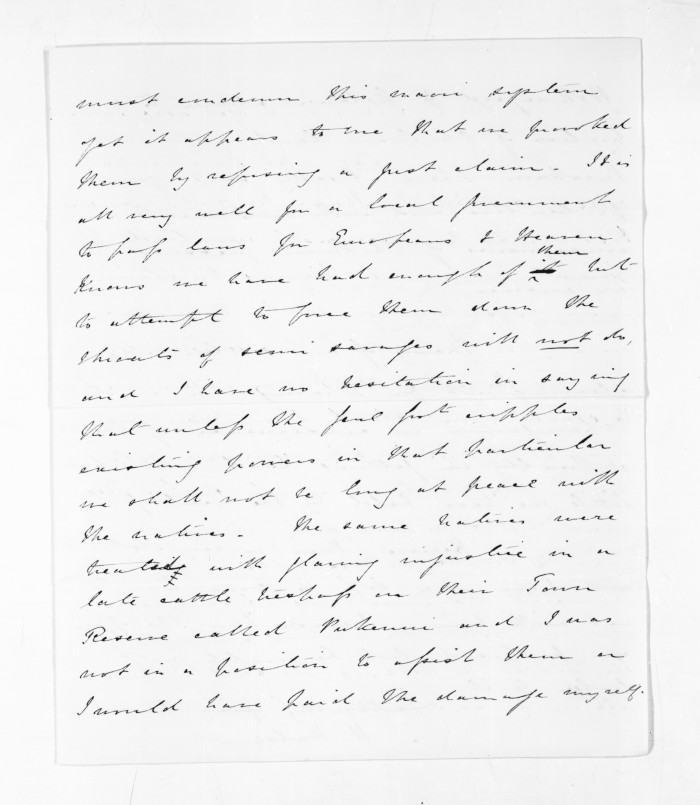 must condemn this maori system
yet it appears to me that we provoked
them by refusing a just claim. It is
all very well for a local government
to pass laws for Europeans & Heaven
knows we have had enough of them but
to attempt to force them down the
throats of semi savages will not do,
and I have no hesitation in saying
that unless the genl govt cripples
existing powers in that particular
we shall not be long at peace with
the natives. The same natives were
treated with glaring injustice in a
late cattle trespass on their Town
Reserve called Pukenui and I was
not in a position to assist them or
I would have paid the damage myself.